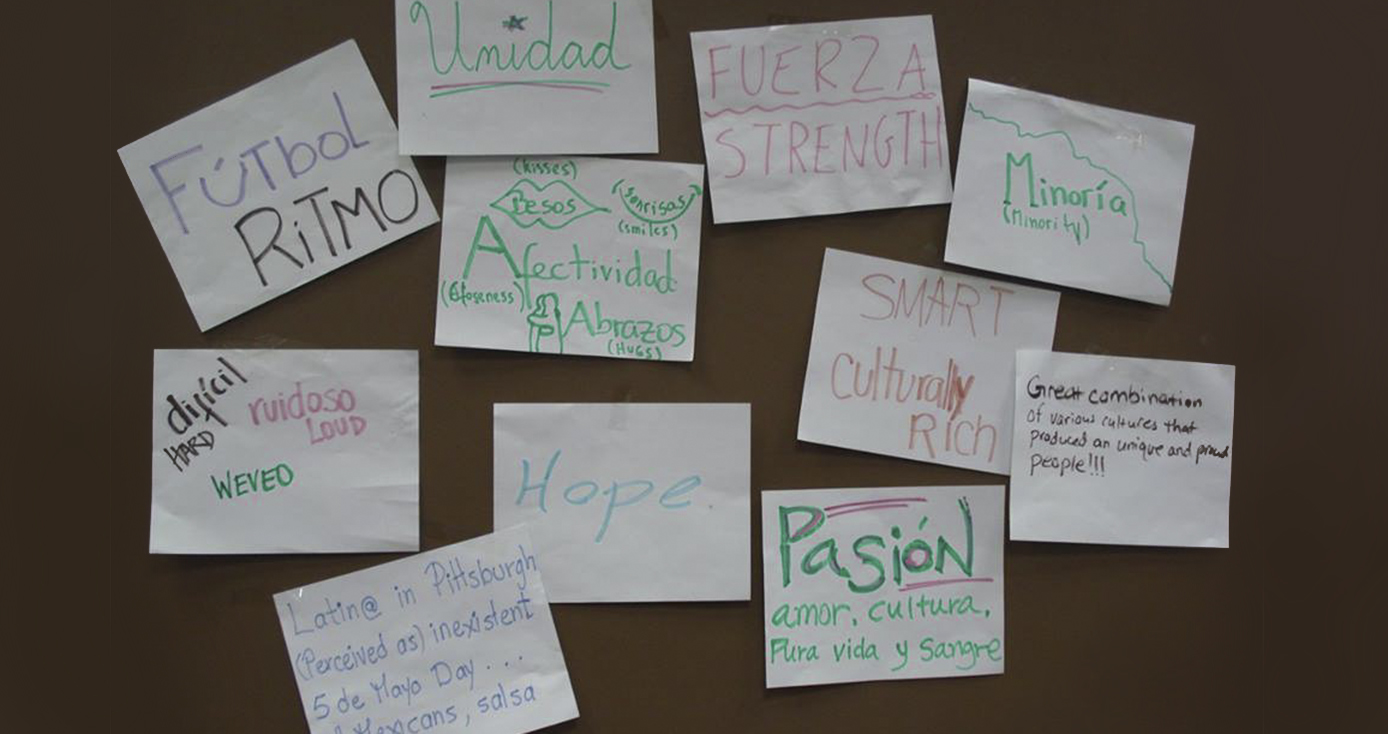 Unidad
FÚTbol
RiTMO
FUERZA
STRENGTH
Minoría
(Minority)
(kisses)
Besos
Sonrisas
(smiles)
Afectividad
Abrazos
(HUGS)
SMART
Culturally
Rich
Great combination
of various cultures that
produced an unique and proud
people!!!
difícil
HARD
ruidoso
LOUD
WEVEO
Hope
Pasión
amor, cultura,
Pura vida y Sangre
Latin@ in Pittsburgh
(Perceived as) inexistent
5 de Mayo Day...
Mexicans, salsa